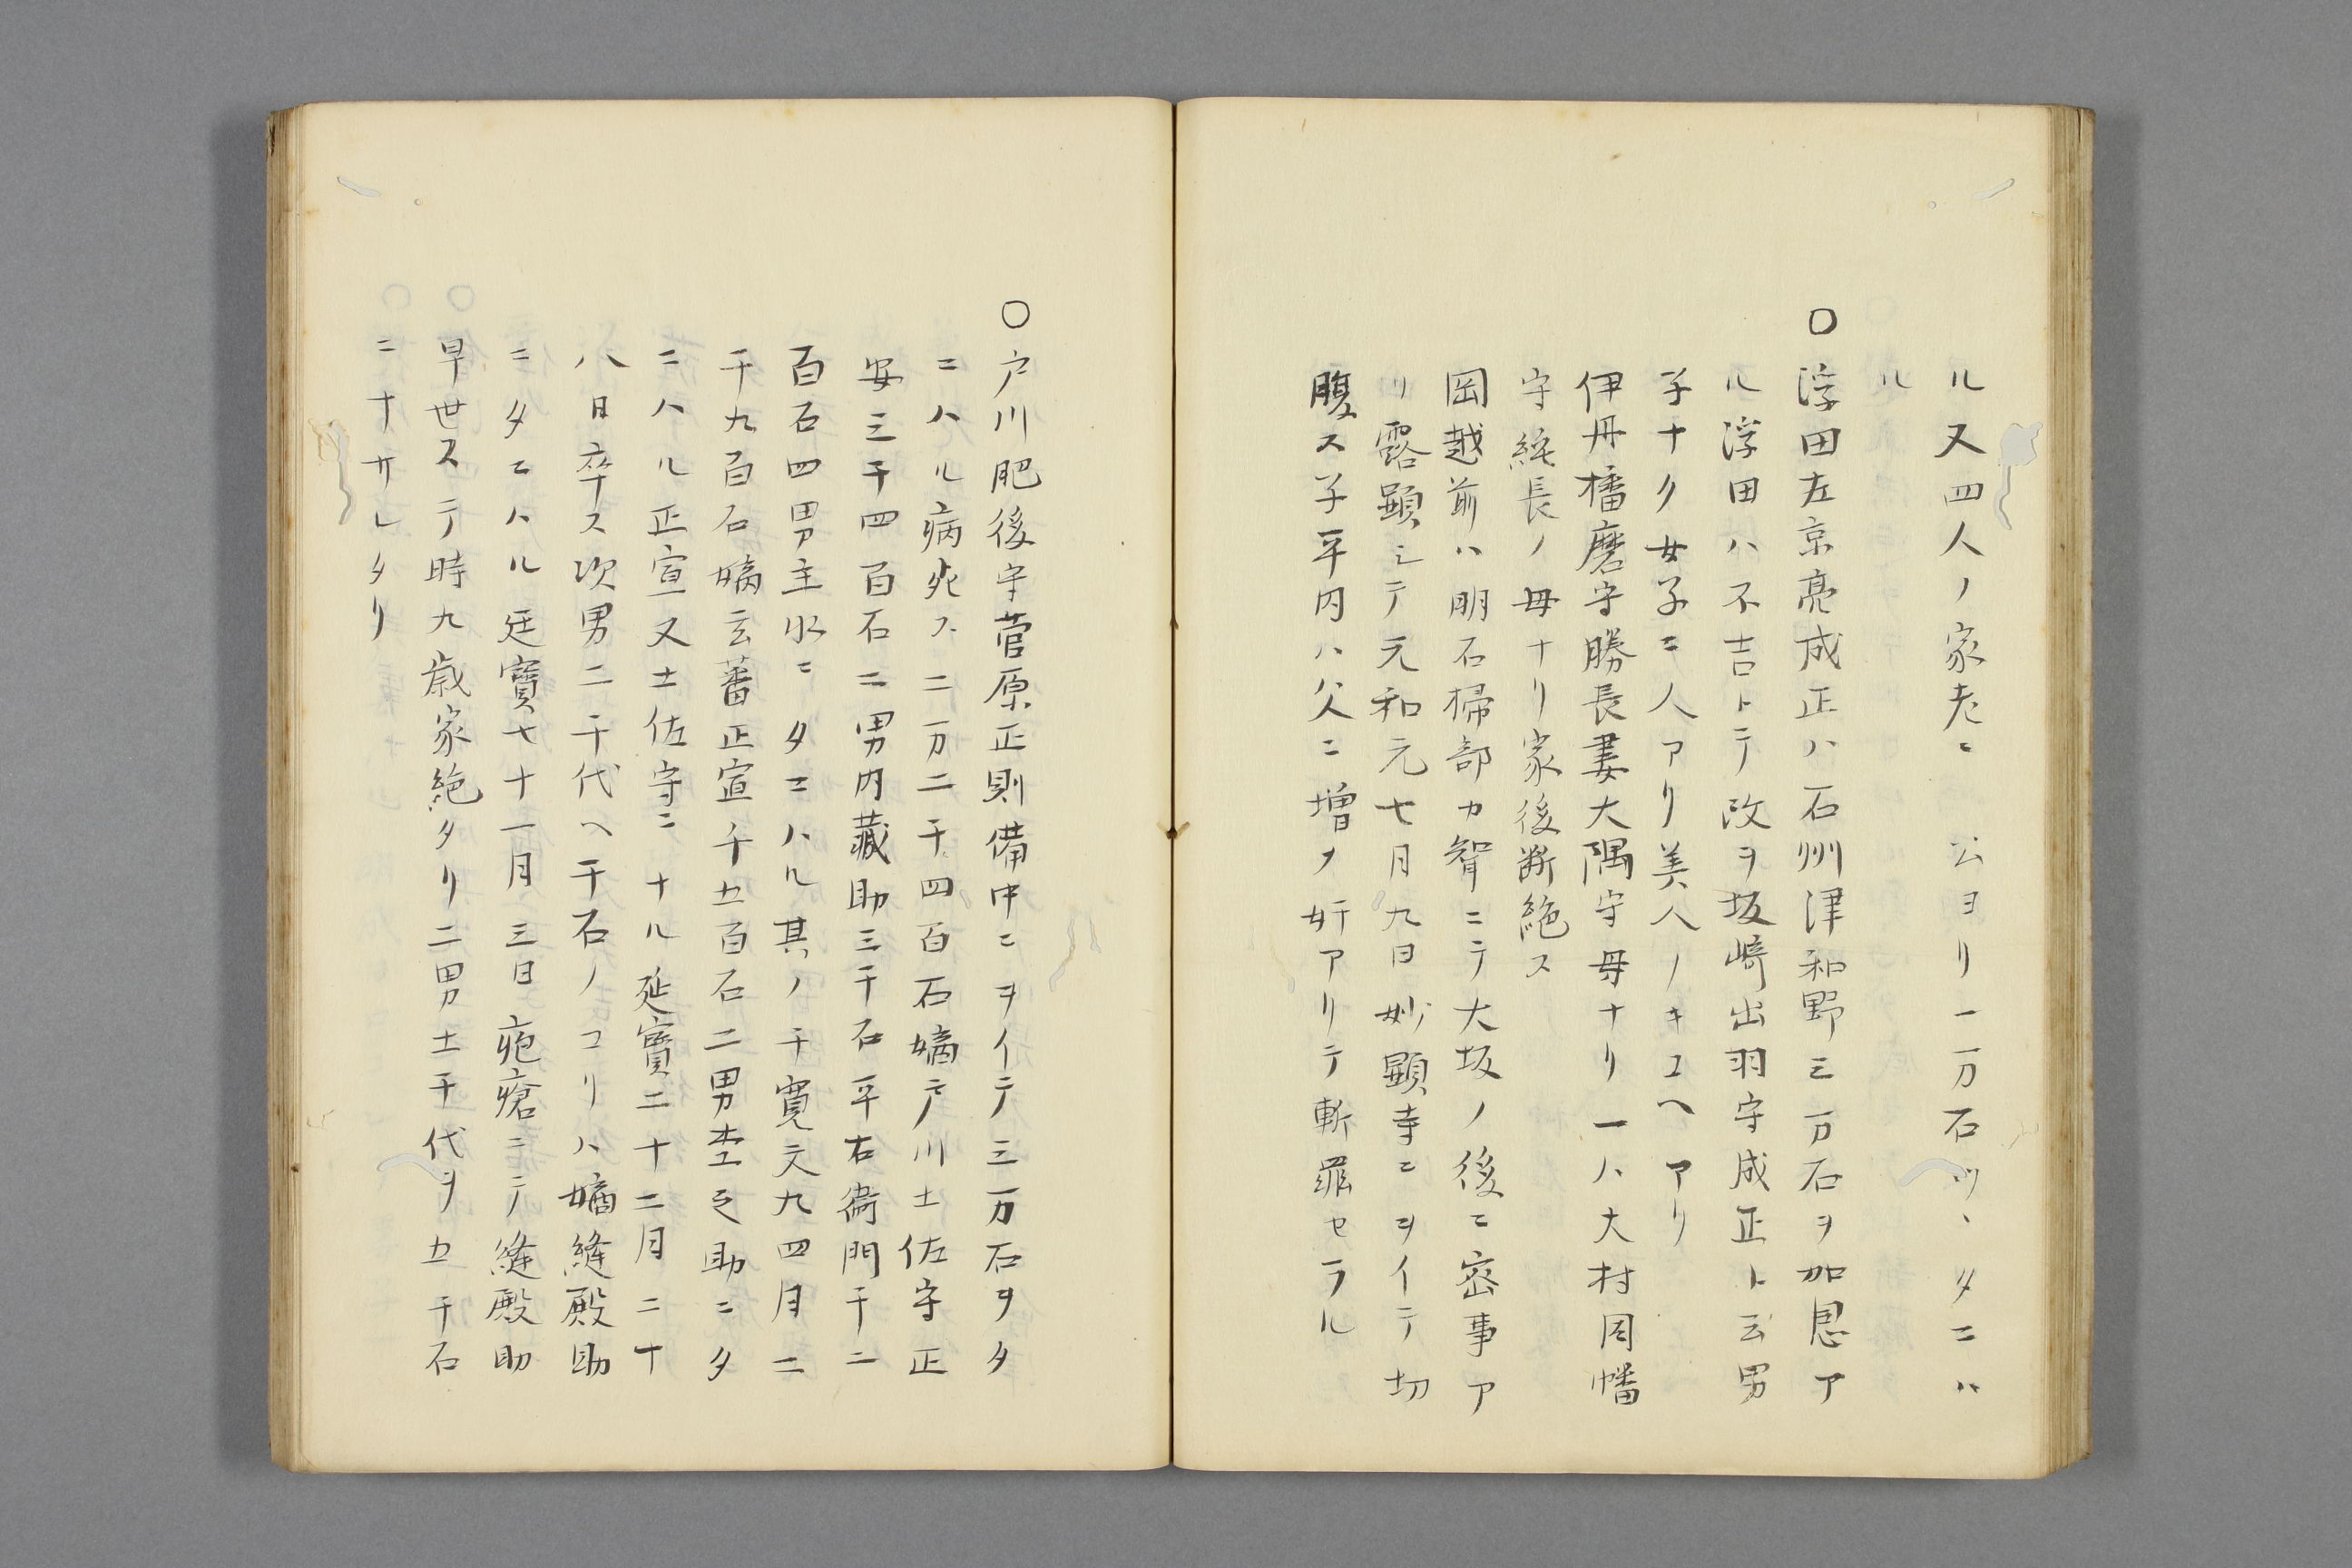 ル又四人ノ家老ニ 公ヨリ一万石ツヽタニハ
ル
〇浮田左京亮成正ハ石州津和野三万石ヲ加恩ア
ル浮田ハ不吉トテ改ヲ坂﨑出羽守成正ト云男
子ナク女子ニ人アリ美人ノキコヘアリ
伊丹播磨守勝長妻大隅守母ナリ一ハ大村因幡
守純長ノ母ナリ家後断絶ス
岡越前ハ明石掃部カ聟ニテ大坂ノ後ニ密事ア
リ露顕シテ元和元七月九日妙顕寺ニヲイテ切
腹ス子平内ハ父ニ増ノ奸アリテ斬罪セラル
〇戸川肥後守菅原正則備中ニヲイテ三万石ヲタ
ニハル病死ス二万二千四百石嫡戸川土佐守正
安三千四百石二男内藏助三千石平右衛門千二
百石四男主水ニタニハル其ノ千寛文九四月二
千九百石嫡玄蕃正宣千五百石二男杢之助ニタ
ニハル正宣又土佐守ニナル延寶二十二月二十
八日卒ス次男二千代ヘ千石ノコリハ嫡縫殿助
ニタニハル延寶七十一月三日疱瘡ニテ縫殿助
早世ステ時九歳家絶タリ二男土千代ヲ五千石
ニナサレタリ